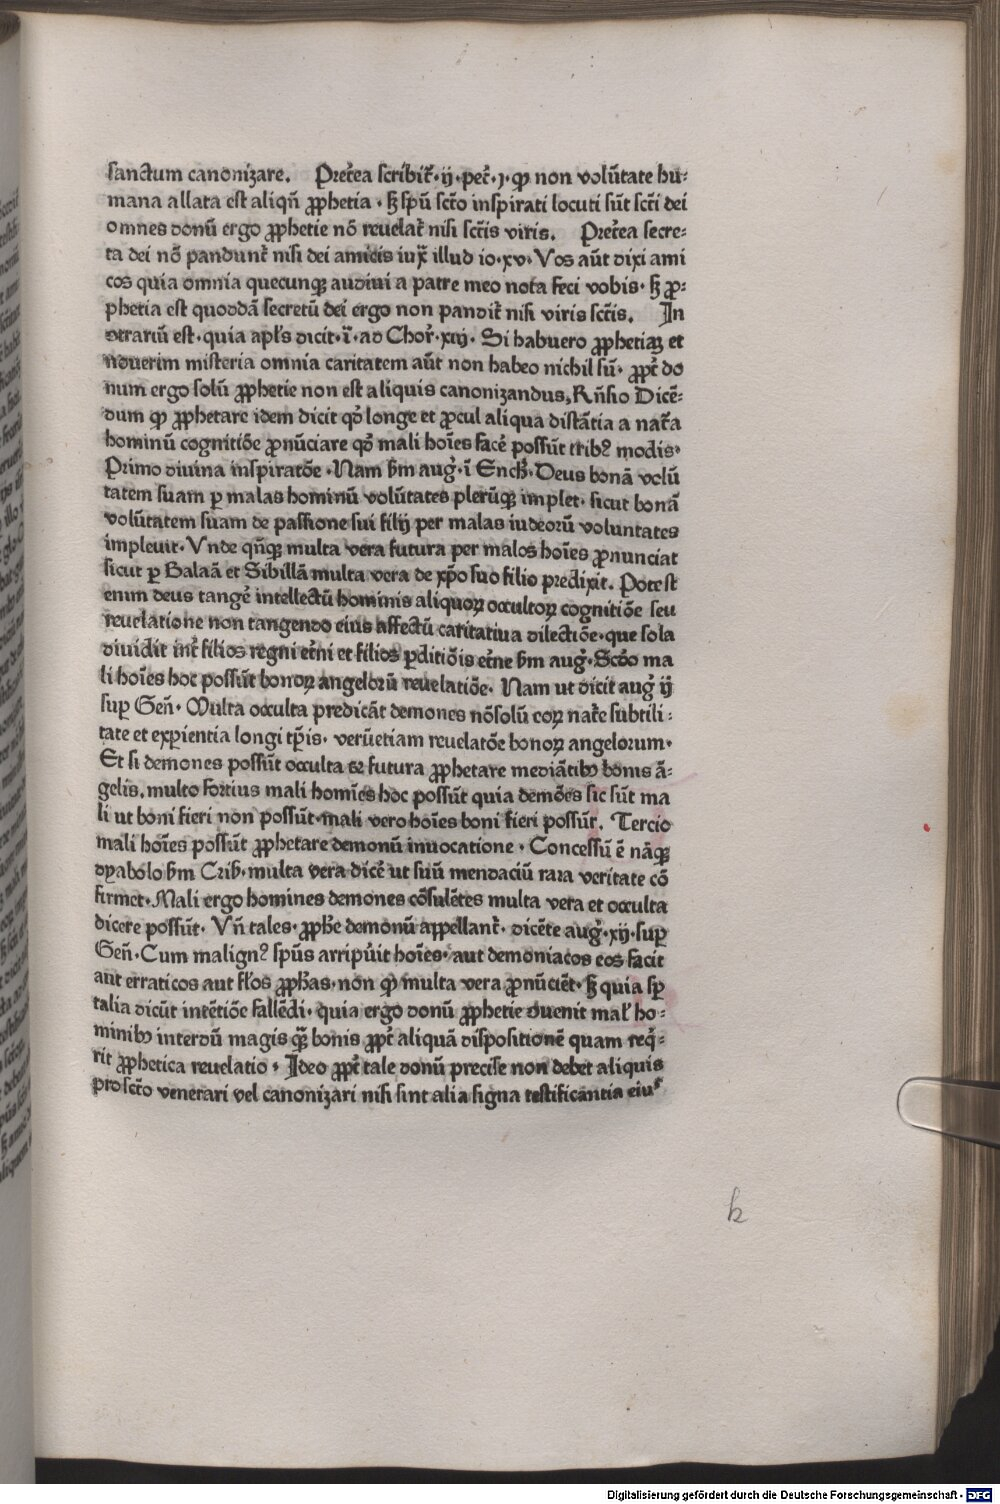 sanctum canonizare. Pret̃ea scribit̃·ij·pet̃·j·ꝙ non volũtate hu-
mana allata est aliqñ ꝓphetia·ſꝫ spũ scto inspirati locuti sũt scti dei
omnes donũ ergo ꝓphetie nõ reuelat̃ nisi sctis viris. Pret̃ea secre-
ta dei nõ pandunt̃ nisi dei amicis iux̃ illud io·xv·Vos aũt dixi ami
cos quia omnia quecunqꝫ audiui a patre meo nota feci vobis·ſꝫ ꝓ-
phetia est quoddã secretũ dei ergo non pandit̃ nisi viris sctis. In
ꝯtrariũ est·quia apl's dicit·i·ad Chor̃·xiij·Si habuero ꝓphetiaꝫ et
nouerim misteria omnia caritatem aũt non habeo nichil sũ·ꝓpt̃ do
num ergo solũ ꝓphetie non est aliquis canonizandus, Rñsio Dicẽ-
dum ꝙ ꝓphetare idem dicit qd' longe et ꝓcul aliqua distãtia a nat̃a
hominũ cognitiõe ꝓnũciare qd' mali hoĩes facẽ possũt tribꝰ modis·
Primo diuina inspiratõe·Nam ẜm aug̃·ĩ Ench̃·Deus bonã volũ
tatem suam ꝑ malas hominũ volũtates plerũqꝫ implet·sicut bonã
volũtatem suam de passione sui filij per malas iudeorũ voluntates
impleuit·Vnde qñqꝫ multa vera futura per malos hoĩes ꝓnunciat
sicut ꝑ Balaã et Sibillã multa vera de xp̃o suo filio predixit. Potest
enim deus tangẽ intellectũ hominis aliquoꝝ occultoꝝ cognitiõe seu
reuelatione non tangendo eius affectũ caritatiua dilectiõe·que sola
diuidit int̃ filios regni et̃ni et filios ꝑditiõis et̃ne ẜm aug̃·Scdo ma
li hoĩes hoc possũt bonoꝝ angelorũ reuelatiõe·Nam ut dicit aug̃ ij
sup̃ Geñ·Multa occulta predicãt demones nõsolũ eoꝝ nat̃e subtili-
tate et exꝑientia longi tp̃is·verũetiam reuelatõe bonoꝝ angelorum·
Et si demones possũt occulta et futura ꝓphetare mediãtibꝰ bonis ã-
gelis, multo fortius mali homĩes hoc possũt quia demões sic sũt ma
li ut boni fieri non possũt·mali vero hoĩes boni fieri possũt. Tercio
mali hoĩes possũt ꝓphetare demonũ inuocatione·Concessũ ẽ nãqꝫ
dyabolo ẜm Cris̃·multa vera dicẽ ut suũ mendaciũ rara veritate cõ
firmet·Mali ergo homines demones cõsulẽtes multa vera et occulta
dicere possũt·Vñ tales·ꝓph̃e demonũ appellant̃·dicẽte aug̃·xij·sup̃
Geñ·Cum malignꝰ spũs arripũit hoĩes·aut demoniacos eos facit
aut erraticos aut fl'os ꝓph̃as·non ꝙ multa vera ꝓnũciẽt·ſꝫ quia sp̃
talia dicũt intẽtiõe fallẽdi·quia ergo donũ ꝓphetie ꝯuenit mal' ho-
minibꝰ interdũ magis qꝫ bonis ꝓpt̃ aliquã dispositionẽ quam req̃-
rit ꝓphetica reuelatio·Ideo ꝓpt̃ tale donũ precise non debet aliquis
pro scto venerari vel canonizari nisi sint alia signa testificantia eiuꝰ
k
Digitalisierung gefördert durch die Deutsche Forschungsgemeinschaft - DFG